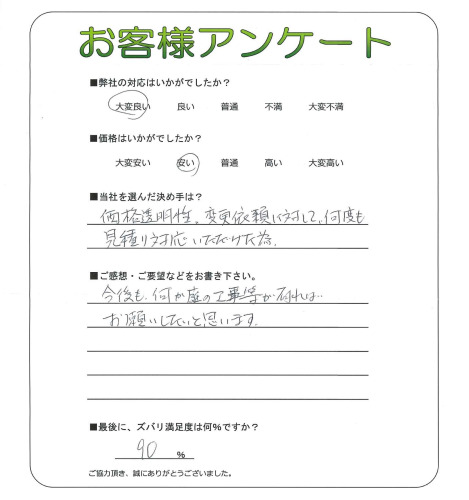 お客様アンケート
■弊社の対応はいかがでしたか？
大変良い 良い 普通 不満 大変不満
■価格はいかがでしたか？
大変安い 安い 普通 高い 大変高い
■当社を選んだ決め手は？
価格透明性、変更依頼に対して、何度も
見積り対応いただけた為。
■ご感想・ご要望などをお書き下さい。
今後も、何か の工事等が有れば…
お願いしたいと思います。
■最後に、ズバリ満足度は何％ですか？
90 ％
ご協力頂き、誠にありがとうございました。